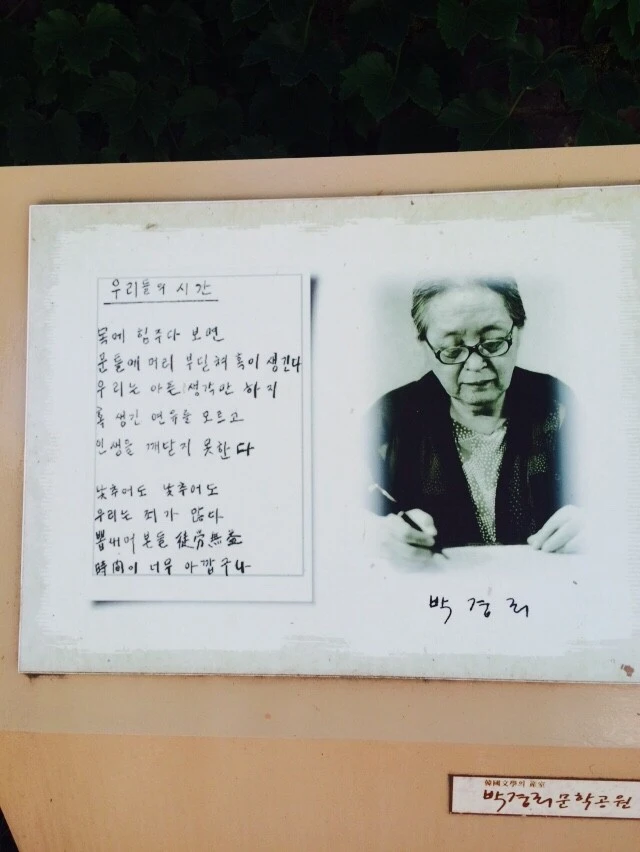 우리들의 시간
목에 힘주다 보면
문틀에 머리 부딪혀 혹이 생긴다
우리는 아픈 생각만 하지
혹 생긴 연유를 모르고
인생을 깨닫지 못한다
낮추어도 낮추어도
우리는 죄가 많다
뽐내어 본들 徒勞無益
時間이 너무 아깝구나
박경리
韓國文學의 産室
박경리문학공원